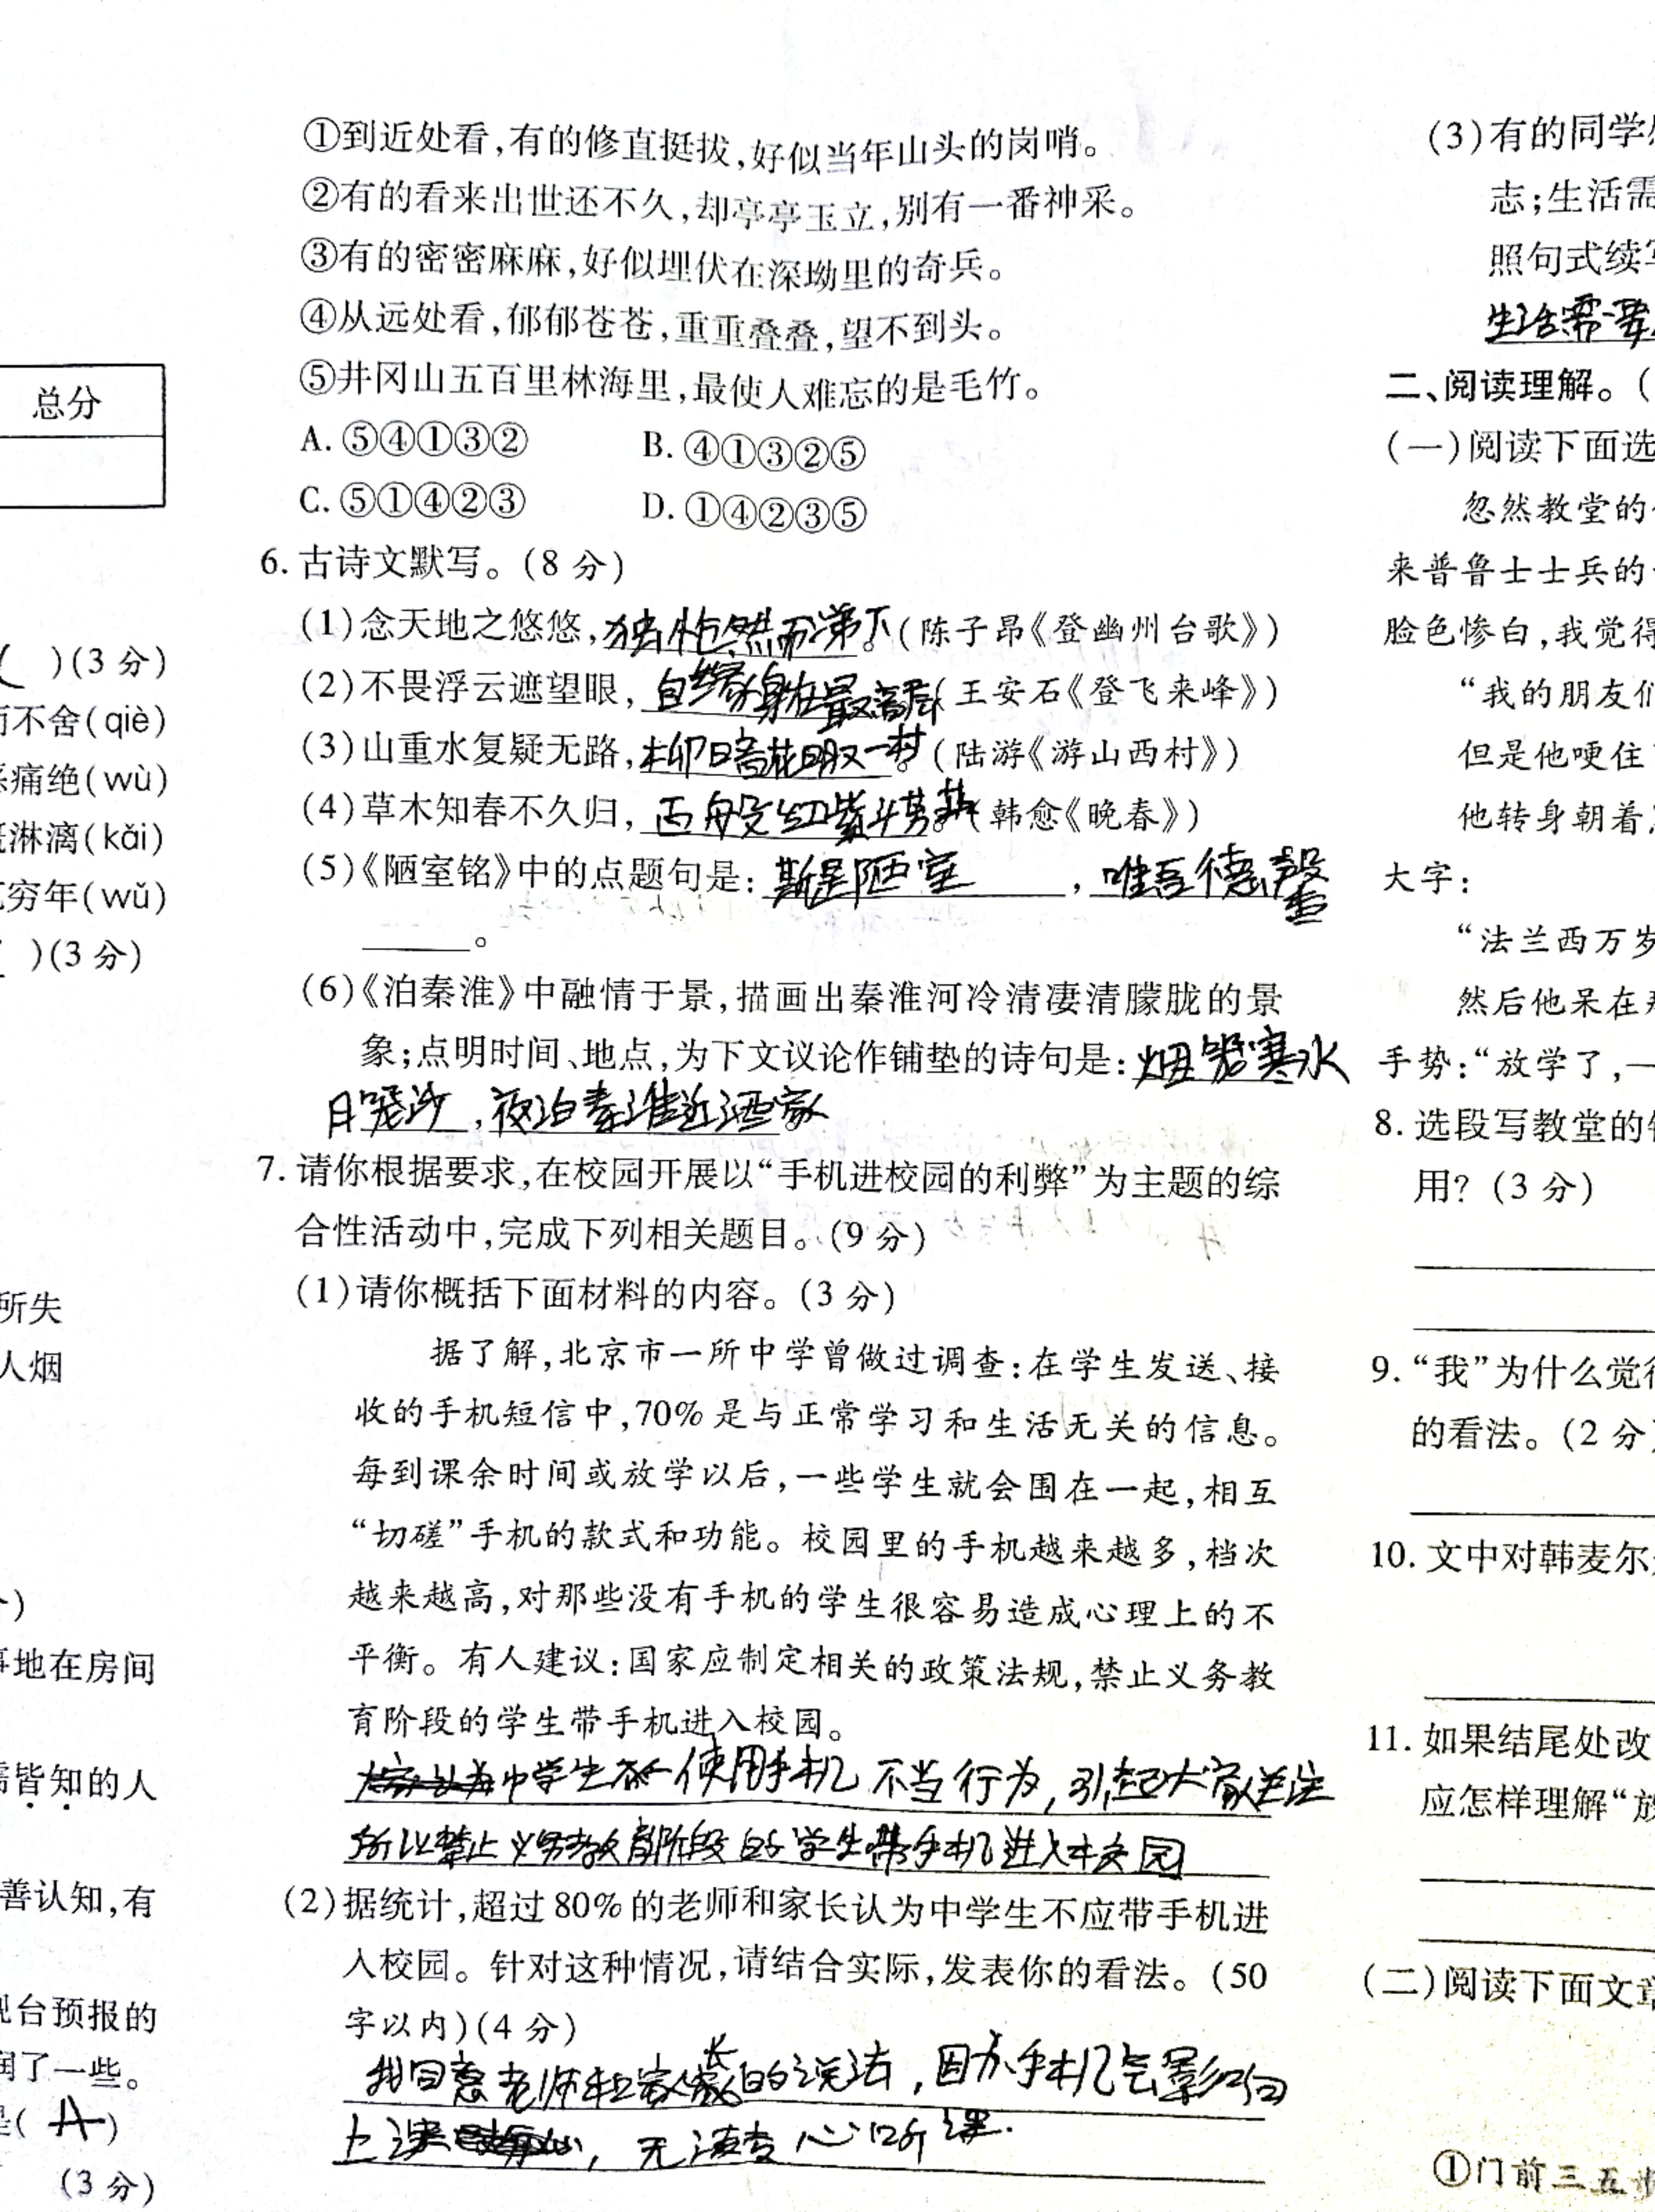 总分
)(3 分)
而不舍(qiè)
痛绝(wù)
淋漓(kǎi)
穷年(wǔ)
)(3 分)
所失
人烟
地在房间
皆知的人
善认知,有
台预报的
润了一些。
( A )
(3 分)
①到近处看,有的修直挺拔,好似当年山头的岗哨。
②有的看来出世还不久,却亭亭玉立,别有一番神采。
③有的密密麻麻,好似埋伏在深坳里的奇兵。
④从远处看,郁郁苍苍,重重叠叠,望不到头。
⑤井冈山五百里林海里,最使人难忘的是毛竹。
A. ⑤④①③② B. ④①③②⑤
C. ⑤①④②③ D. ①④②③⑤
6. 古诗文默写。(8 分)
(1)念天地之悠悠,独怆然而涕下。(陈子昂《登幽州台歌》)
(2)不畏浮云遮望眼,自缘身在最高层(王安石《登飞来峰》)
(3)山重水复疑无路,柳暗花明又一村。(陆游《游山西村》)
(4)草木知春不久归,百般红紫斗芳菲。(韩愈《晚春》)
(5)《陋室铭》中的点题句是:斯是陋室,唯吾德馨
。
(6)《泊秦淮》中融情于景,描画出秦淮河冷清凄清朦胧的景
象;点明时间、地点,为下文议论作铺垫的诗句是:烟笼寒水
月笼沙,夜泊秦淮近酒家
7. 请你根据要求,在校园开展以“手机进校园的利弊”为主题的综
合性活动中,完成下列相关题目。(9 分)
(1)请你概括下面材料的内容。(3 分)
据了解,北京市一所中学曾做过调查:在学生发送、接
收的手机短信中,70%是与正常学习和生活无关的信息。
每到课余时间或放学以后,一些学生就会围在一起,相互
“切磋”手机的款式和功能。校园里的手机越来越多,档次
越来越高,对那些没有手机的学生很容易造成心理上的不
平衡。有人建议:国家应制定相关的政策法规,禁止义务教
育阶段的学生带手机进入校园。
中学生使用手机不当行为,引起大家关注
所以禁止义务教育阶段的学生带手机进入校园
(2)据统计,超过 80%的老师和家长认为中学生不应带手机进
入校园。针对这种情况,请结合实际,发表你的看法。(50
字以内)(4 分)
我同意老师和家长的说法,因为手机会影响
上课,无法专心听课.
(3)有的同学
志;生活需
照句式续写
生活需要
二、阅读理解。(
(一)阅读下面选
忽然教堂的
来普鲁士士兵的
脸色惨白,我觉得
“我的朋友们
但是他哽住
他转身朝着
大字:
“法兰西万岁
然后他呆在
手势:“放学了,
8. 选段写教堂的
用? (3 分)
9. “我”为什么觉得
的看法。(2 分)
10. 文中对韩麦尔
11. 如果结尾处改
应怎样理解“放
(二)阅读下面文章
①门前三五